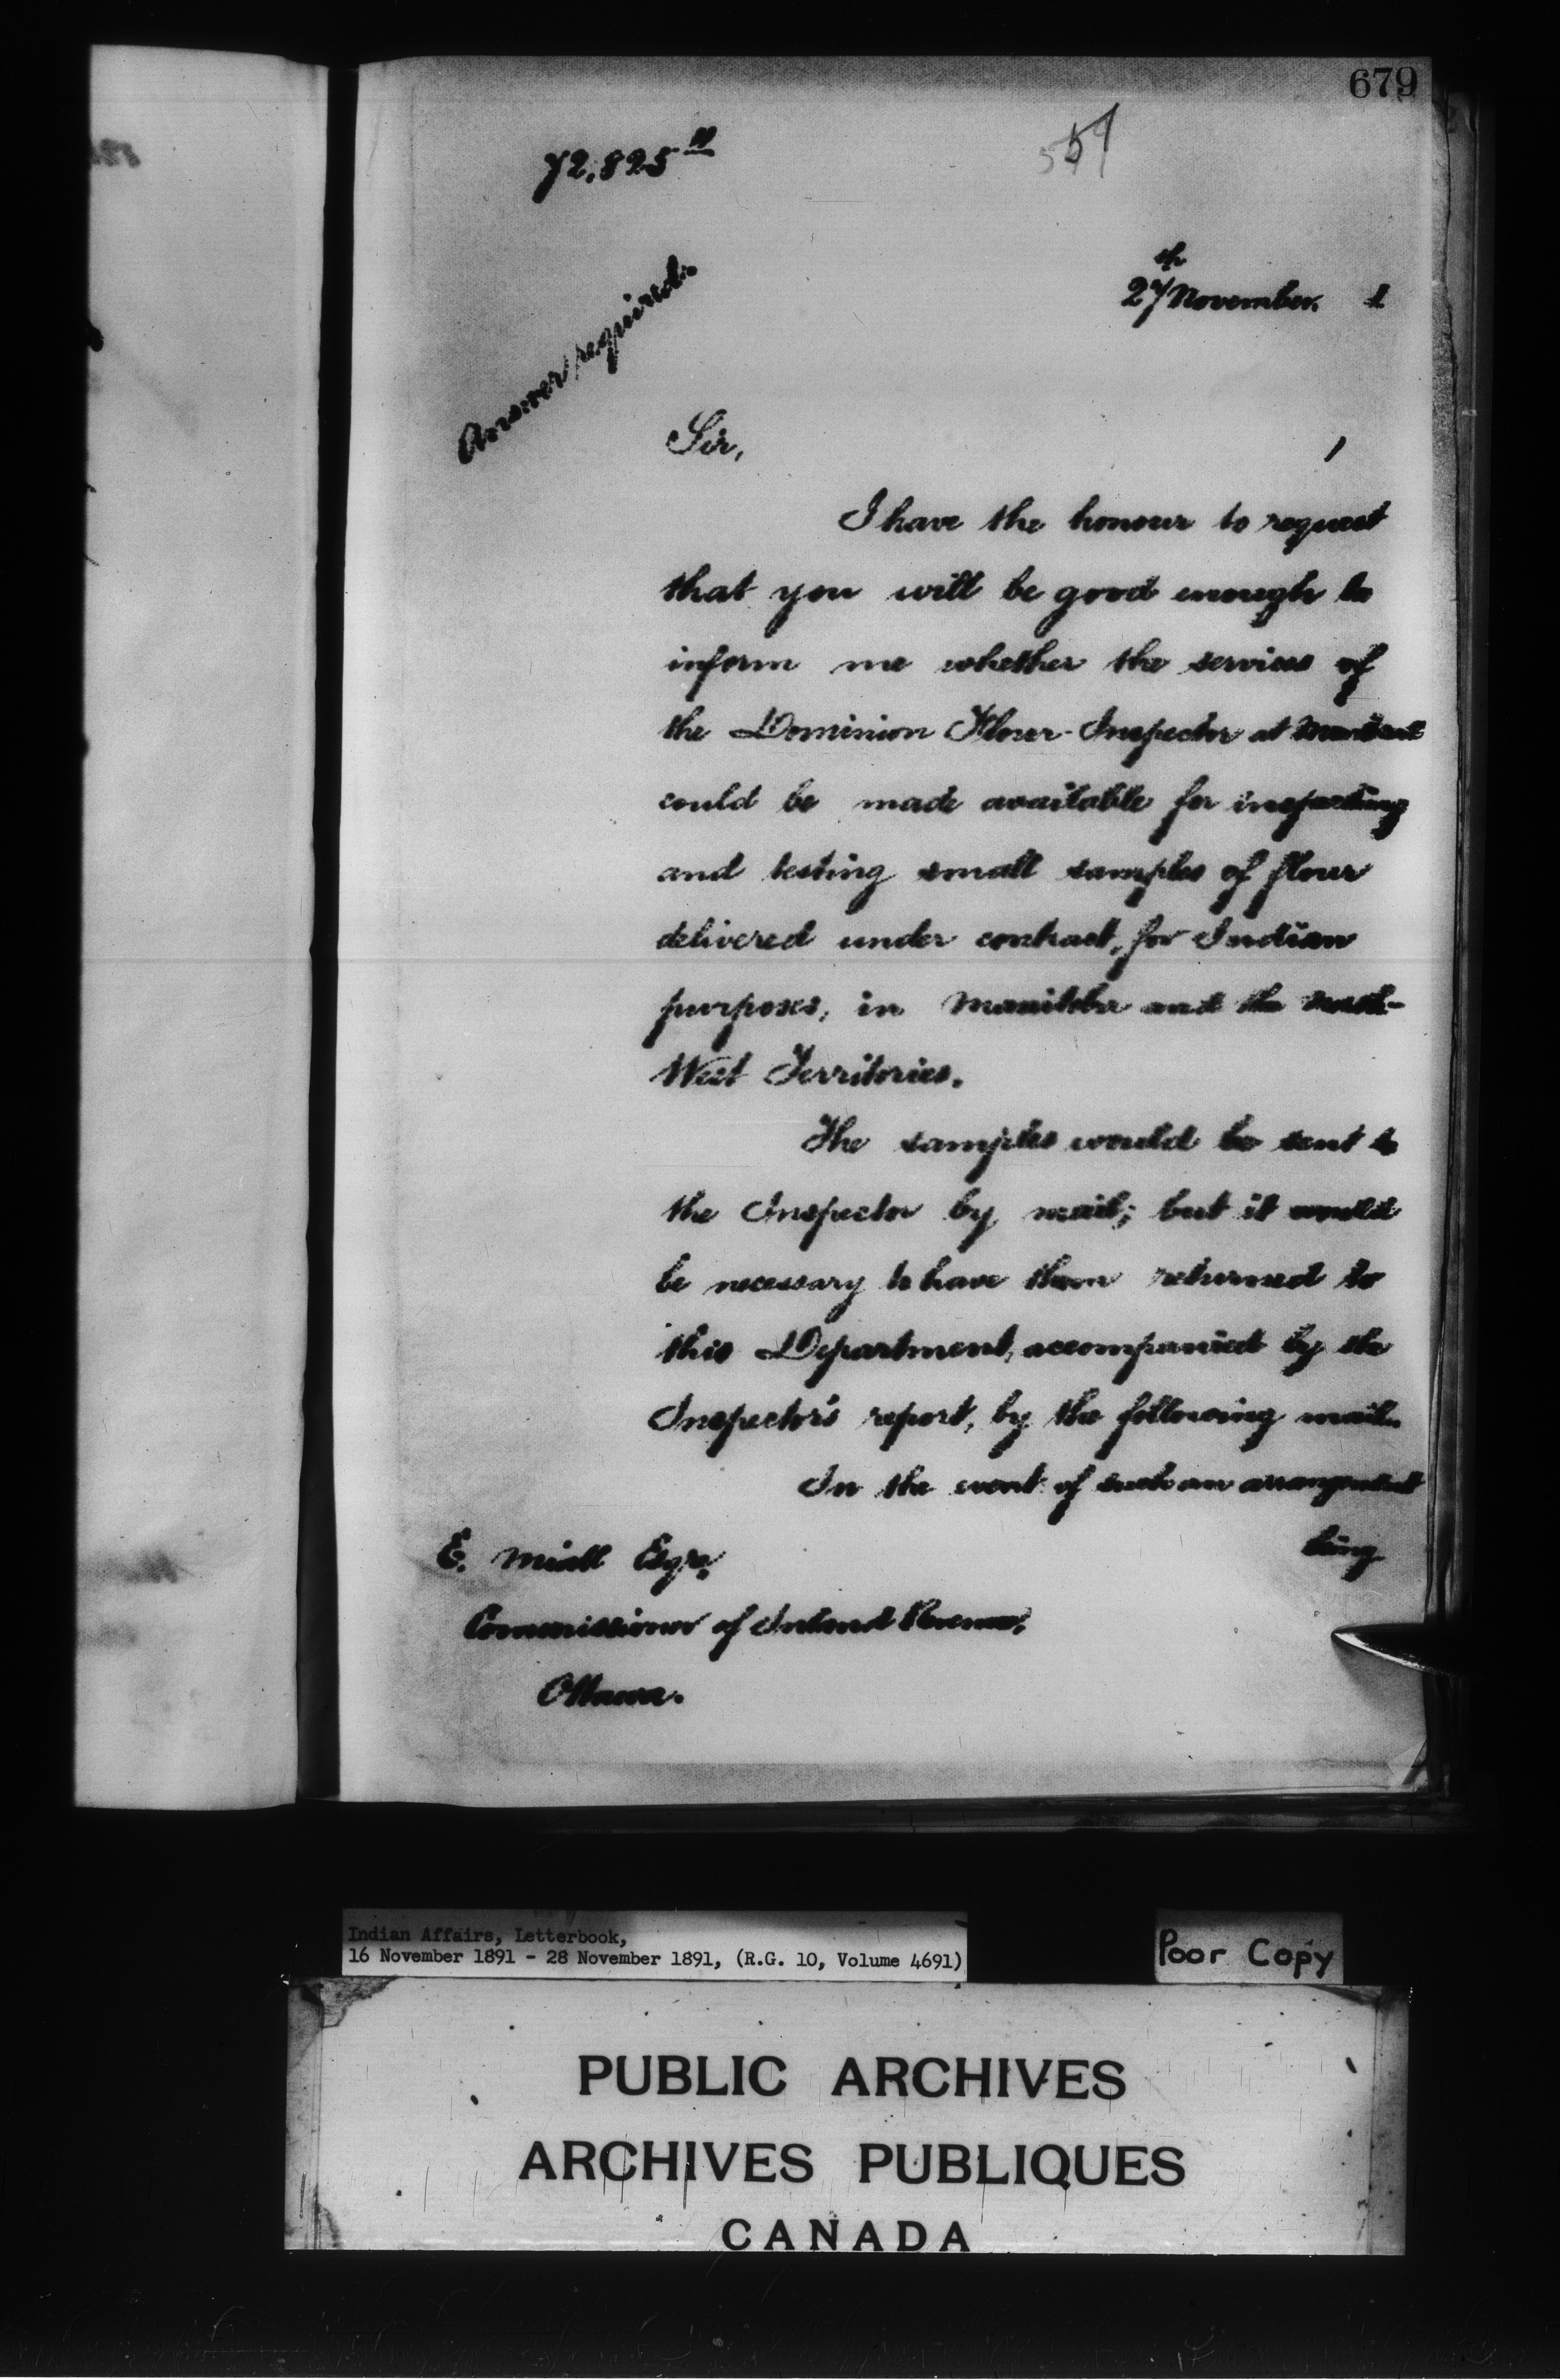 679
72,825
Answer required.
27th November. 1
Sir,
I have the honour to request
that you will be good enough to
inform me whether the services of
the Dominion Flour-Inspector at Montreal
could be made available for inspecting
and testing small samples of flour
delivered under contract, for Indian
purposes, in Manitoba and the North-
West Territories.
The samples would be sent to
the Inspector by mail; but it would
be necessary to have them returned to
this Department, accompanied by the
Inspector's report, by the following mail.
In the event of such an arrangement
being
E. Miall Esqre,
Commissioner of Inland Revenue,
Ottawa.
Indian Affairs, Letterbook,
16 November 1891 - 28 November 1891, (R.G. 10, Volume 4691)
Poor Copy
PUBLIC ARCHIVES
ARCHIVES PUBLIQUES
CANADA